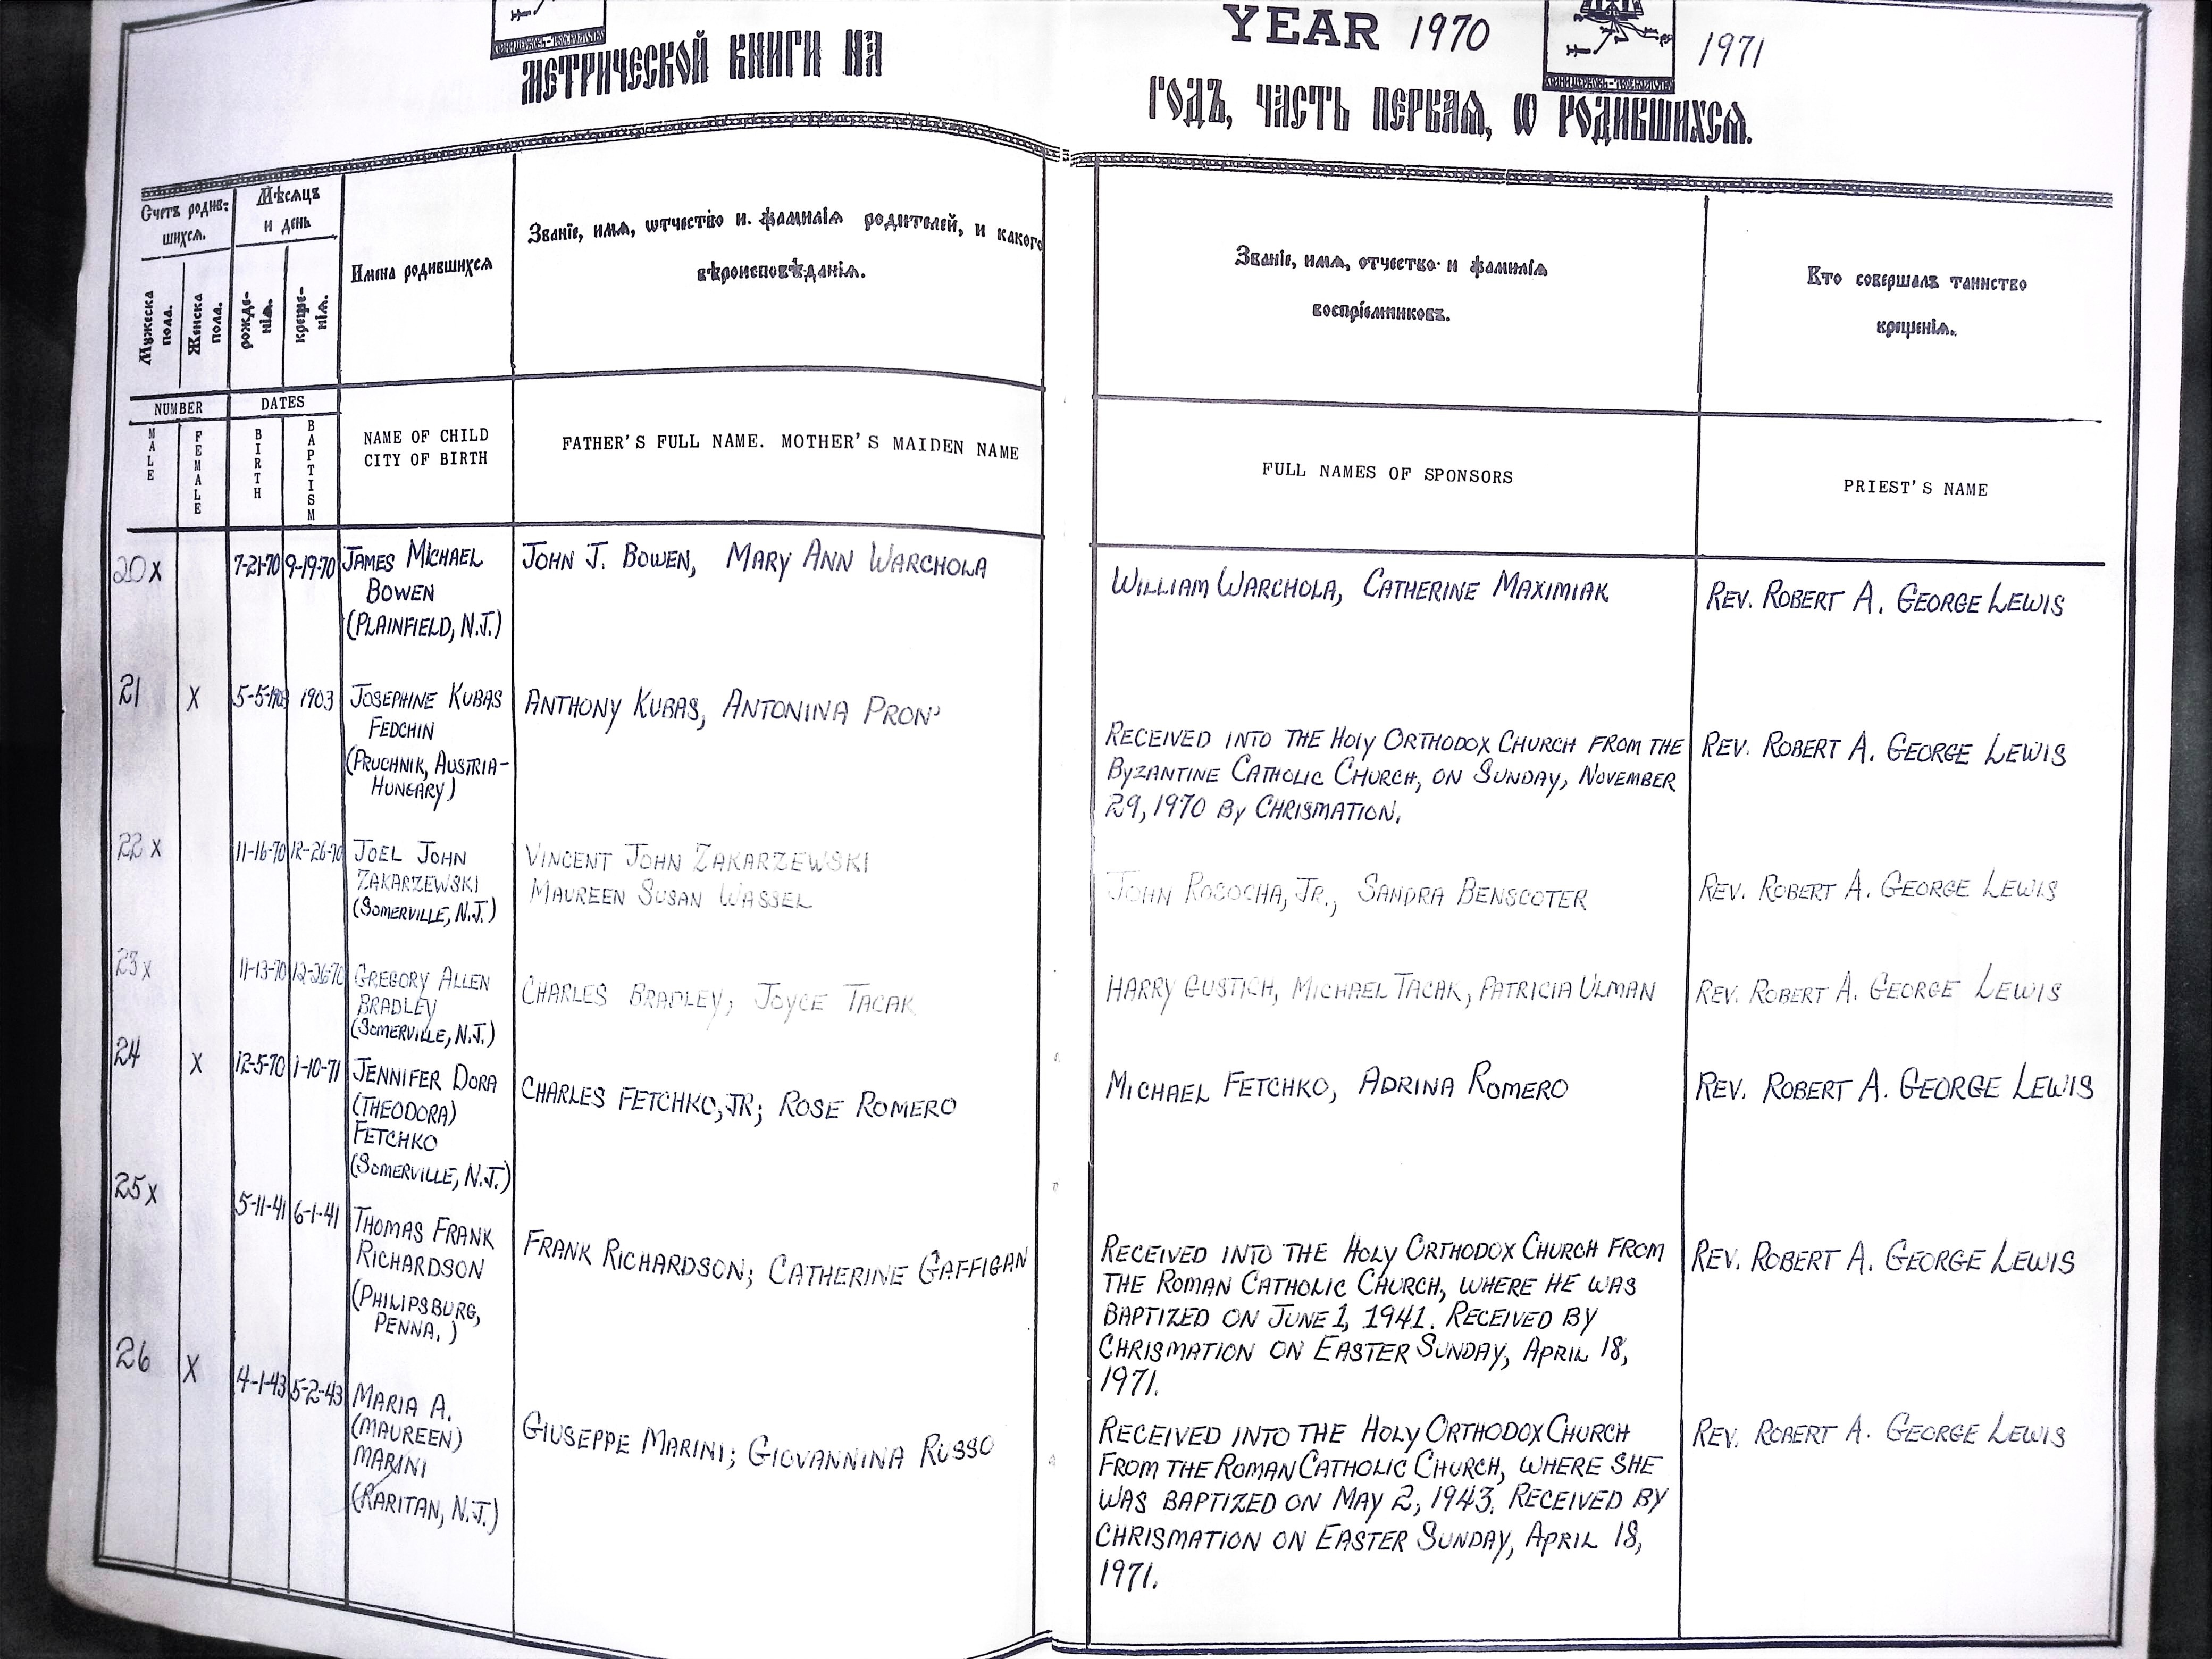 МЕТРИЧЕСКОЙ КНИГИ НА
YEAR 1970
1971
ГОДЪ, ЧАСТЬ ПЕРВАѦ, Ѡ РОДИВШИХСѦ.
Счетъ родив-
шихсѧ.
Мужеска
пола.
Женска
пола.
Мѣсѧцъ
и день
рожде-
нїѧ.
креще-
нїѧ.
Имена родившихсѧ
Званїе, имѧ, ѡтчество и. фамилїѧ родителей, и какого
вѣроисповѣданїѧ.
Званїе, имѧ, отчество и фамилїѧ
воспрїемниковъ.
Кто совершалъ таинство
крещенїѧ.
NUMBER
DATES
MALE
FEMALE
BIRTH
BAPTISM
NAME OF CHILD
CITY OF BIRTH
FATHER'S FULL NAME. MOTHER'S MAIDEN NAME
FULL NAMES OF SPONSORS
PRIEST'S NAME
20 X
7-21-70
9-19-70
JAMES MICHAEL
BOWEN
(PLAINFIELD, N.J.)
JOHN J. BOWEN, MARY ANN WARCHOLA
WILLIAM WARCHOLA, CATHERINE MAXIMIAK
REV. ROBERT A. GEORGE LEWIS
21
X
5-5-1903
1903
JOSEPHINE KUBAS
FEDCHIN
(PRUCHNIK, AUSTRIA-
HUNGARY)
ANTHONY KUBAS, ANTONINA PRON'
RECEIVED INTO THE HOLY ORTHODOX CHURCH FROM THE
BYZANTINE CATHOLIC CHURCH, ON SUNDAY, NOVEMBER
29, 1970 BY CHRISMATION.
REV. ROBERT A. GEORGE LEWIS
22 X
11-16-70
12-26-70
JOEL JOHN
ZAKARZEWSKI
(SOMERVILLE, N.J.)
VINCENT JOHN ZAKARZEWSKI
MAUREEN SUSAN WASSEL
JOHN ROCOCHA, JR., SANDRA BENSCOTER
REV. ROBERT A. GEORGE LEWIS
23 X
11-13-70
12-26-70
GREGORY ALLEN
BRADLEY
(SOMERVILLE, N.J.)
CHARLES BRADLEY; JOYCE TACAK
HARRY GUSTICH, MICHAEL TACAK, PATRICIA ULMAN
REV. ROBERT A. GEORGE LEWIS
24
X
12-5-70
1-10-71
JENNIFER DORA
(THEODORA)
FETCHKO
(SOMERVILLE, N.J.)
CHARLES FETCHKO, JR; ROSE ROMERO
MICHAEL FETCHKO, ADRINA ROMERO
REV. ROBERT A. GEORGE LEWIS
25 X
5-11-41
6-1-41
THOMAS FRANK
RICHARDSON
(PHILIPSBURG,
PENNA.)
FRANK RICHARDSON; CATHERINE GAFFIGAN
RECEIVED INTO THE HOLY ORTHODOX CHURCH FROM
THE ROMAN CATHOLIC CHURCH, WHERE HE WAS
BAPTIZED ON JUNE 1, 1941. RECEIVED BY
CHRISMATION ON EASTER SUNDAY, APRIL 18,
1971.
REV. ROBERT A. GEORGE LEWIS
26
X
4-1-43
5-2-43
MARIA A.
(MAUREEN)
MARINI
(RARITAN, N.J.)
GIUSEPPE MARINI; GIOVANNINA RUSSO
RECEIVED INTO THE HOLY ORTHODOX CHURCH
FROM THE ROMAN CATHOLIC CHURCH, WHERE SHE
WAS BAPTIZED ON MAY 2, 1943. RECEIVED BY
CHRISMATION ON EASTER SUNDAY, APRIL 18,
1971.
REV. ROBERT A. GEORGE LEWIS